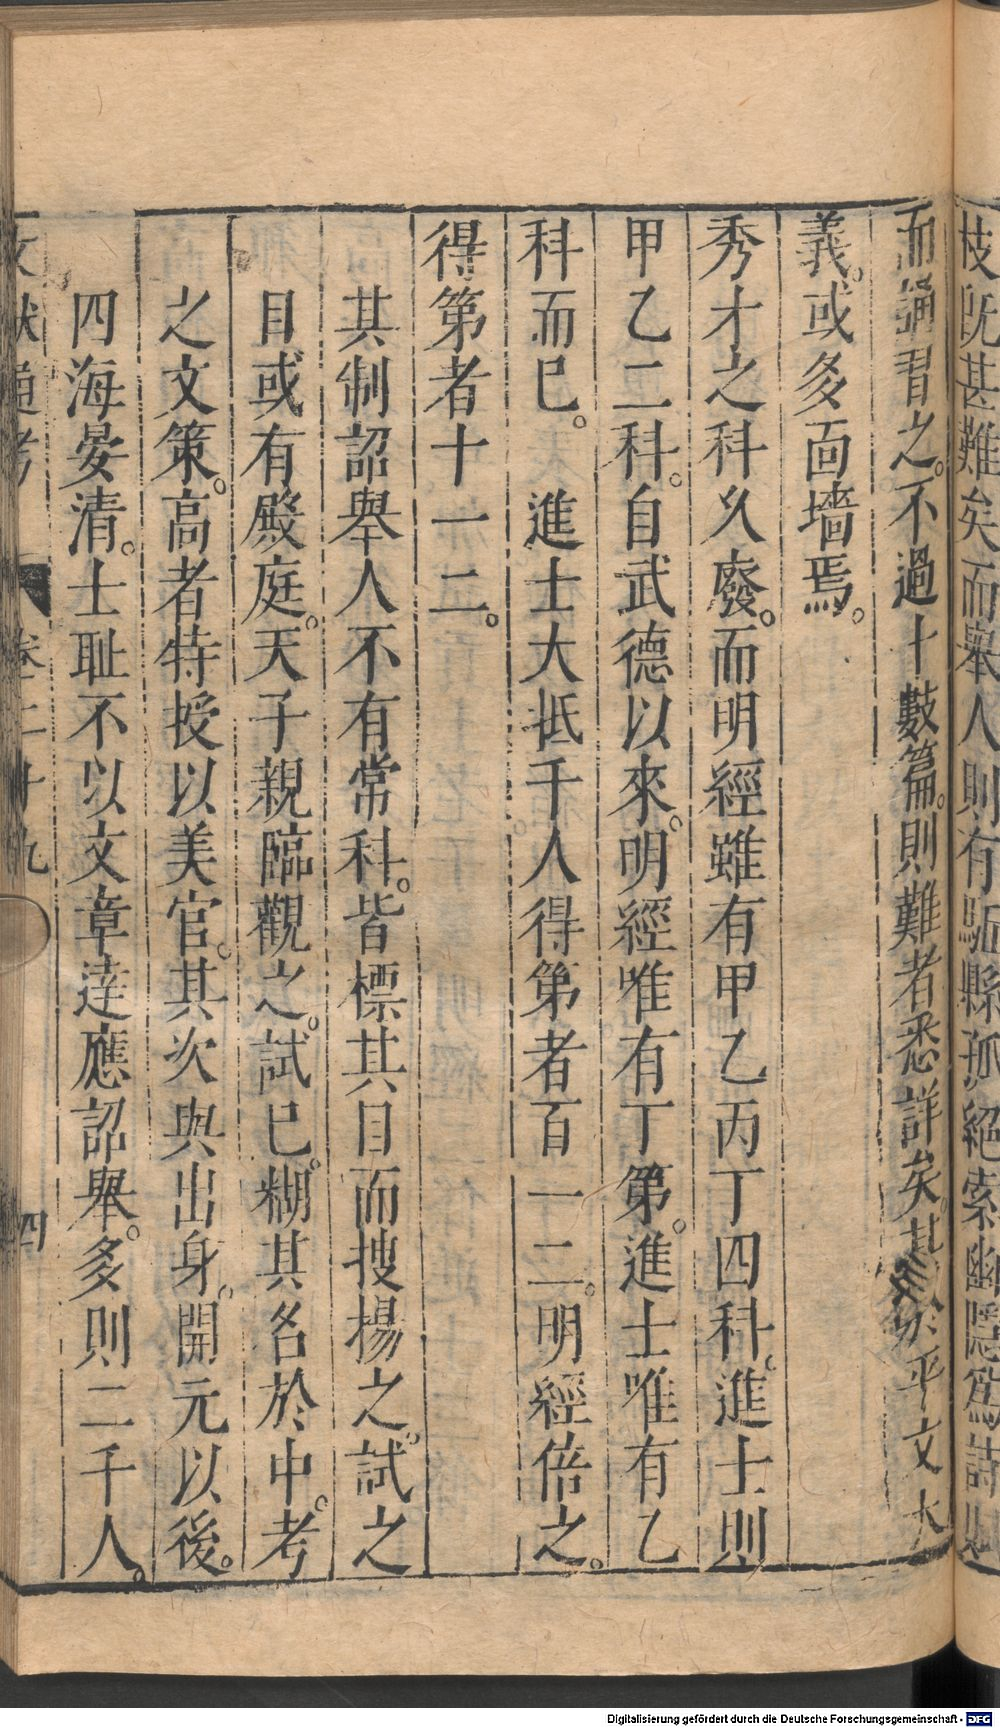 技旣甚難矣而舉人則有駈縣孤絕索幽隱爲詩賦
而誦習之。不過十數篇。則難者悉詳矣。其於平文大
義。或多面墻焉。
秀才之科久廢。而明經雖有甲乙丙丁四科。進士則
甲乙二科。自武德以來。明經唯有丁第。進士唯有乙
科而已。 進士大抵千人得第者百一二。明經倍之。
得第者十一二。
其制詔舉人不有常科。皆標其目而搜揚之。試之
目或有殿庭。天子親臨觀之。試已。糊其名於中。考
之文策。高者特授以美官。其次與出身。開元以後。
四海晏清。士耻不以文章達應詔舉。多則二千人。
文獻通考 卷二十九 四
Digitalisierung gefördert durch die Deutsche Forschungsgemeinschaft - DFG